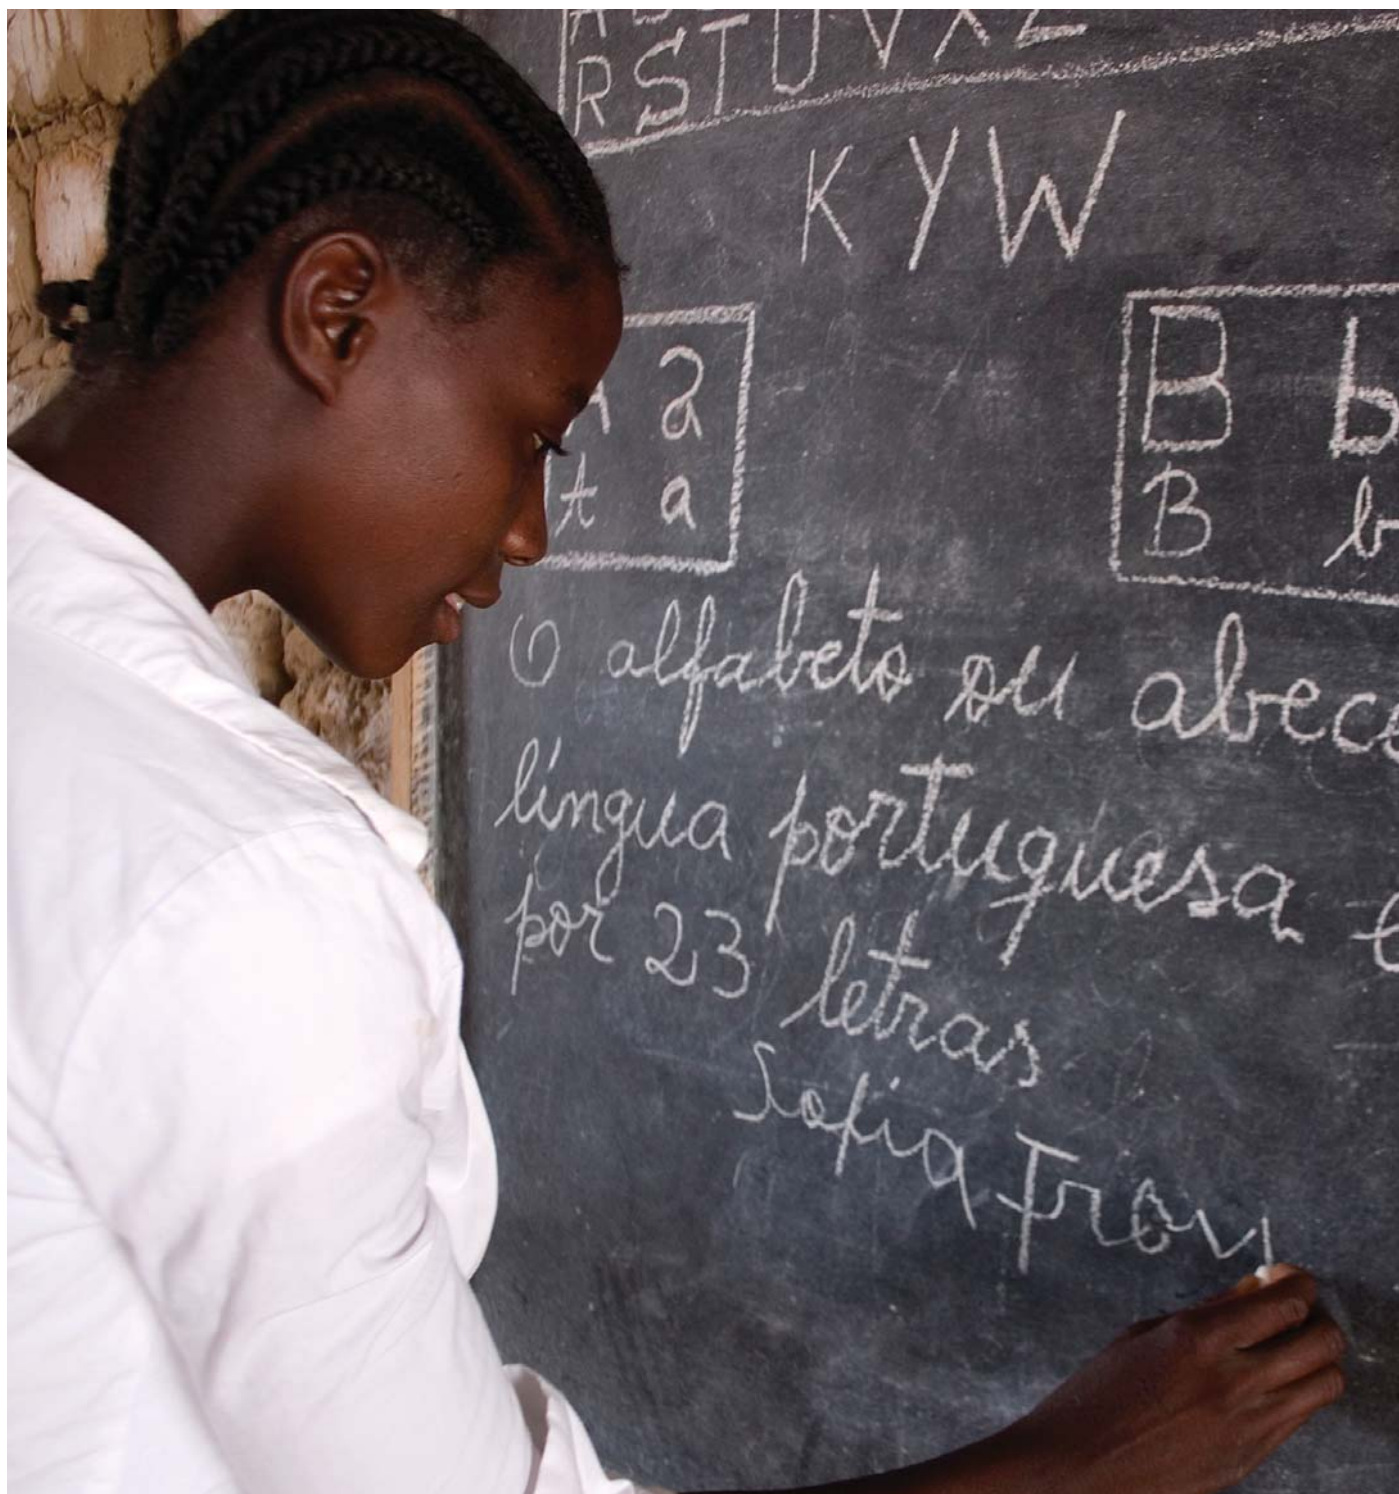 R S T U V X Z
K Y W
A a
A a
B b
B b
O alfabeto ou
língua portuguesa
por 23 letras
Sofia Fran